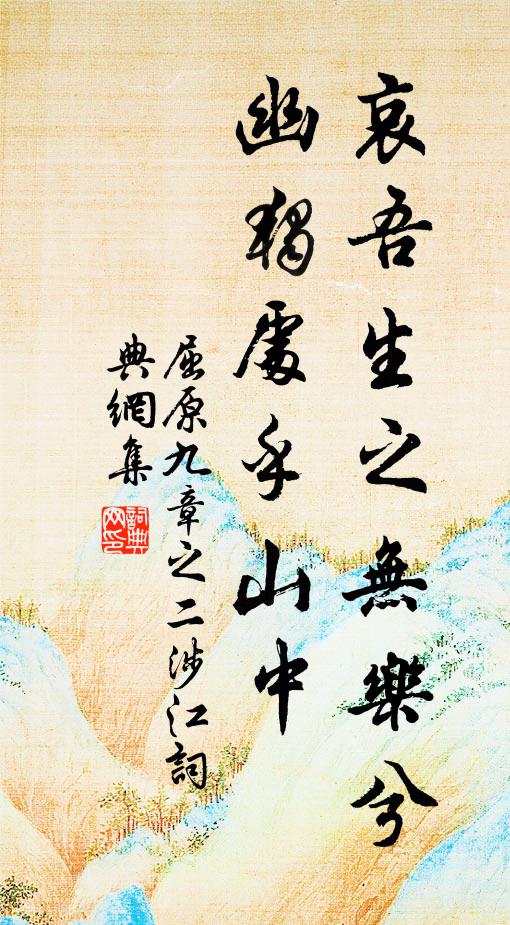 哀吾生之無樂兮
幽獨處乎山中
屈原九章之二涉江詞
典網集
詞典
网印